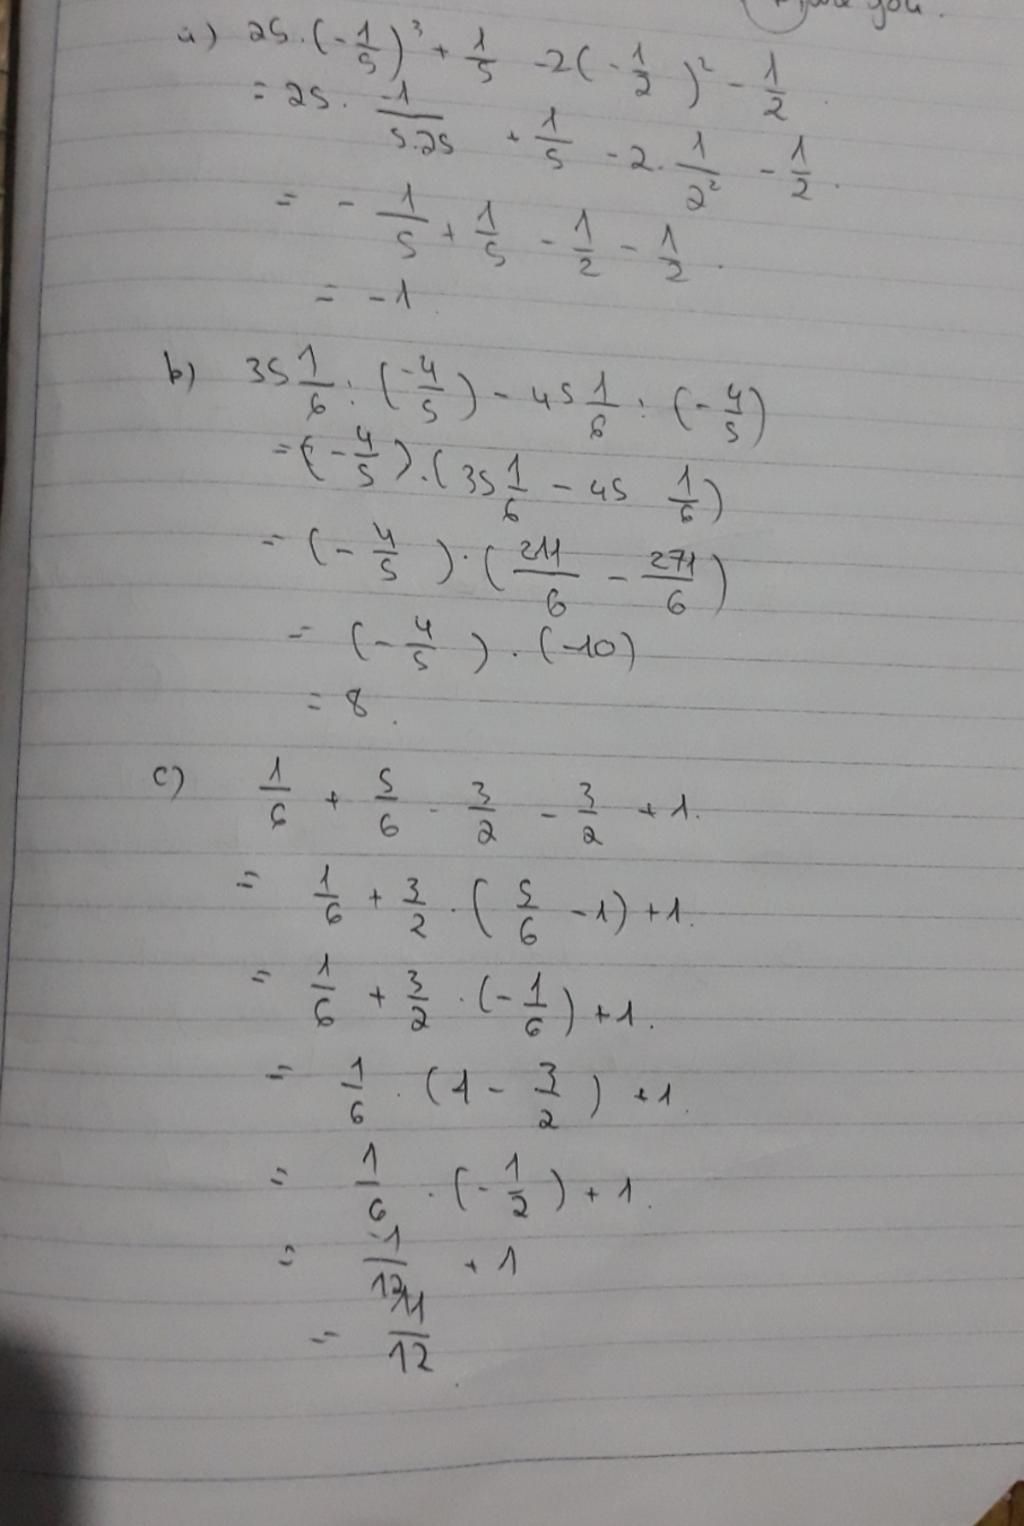 you.
a) 25.(-1/5)³ + 1/5 -2(-1/2)² - 1/2
= 25. -1/5.25 + 1/5 - 2. 1/2² - 1/2.
= - 1/5 + 1/5 - 1/2 - 1/2.
= -1.
b) 35 1/6 : (-4/5) - 45 1/6 : (-4/5)
= (-4/5).(35 1/6 - 45 1/6)
= (-4/5).(211/6 - 271/6)
= (-4/5).(-10)
= 8.
c) 1/6 + 5/6 . 3/2 - 3/2 + 1.
= 1/6 + 3/2 . (5/6 - 1) + 1.
= 1/6 + 3/2 . (-1/6) + 1.
= 1/6 . (1 - 3/2) + 1.
= 1/6 . (-1/2) + 1.
= -1/12 + 1
= 11/12.